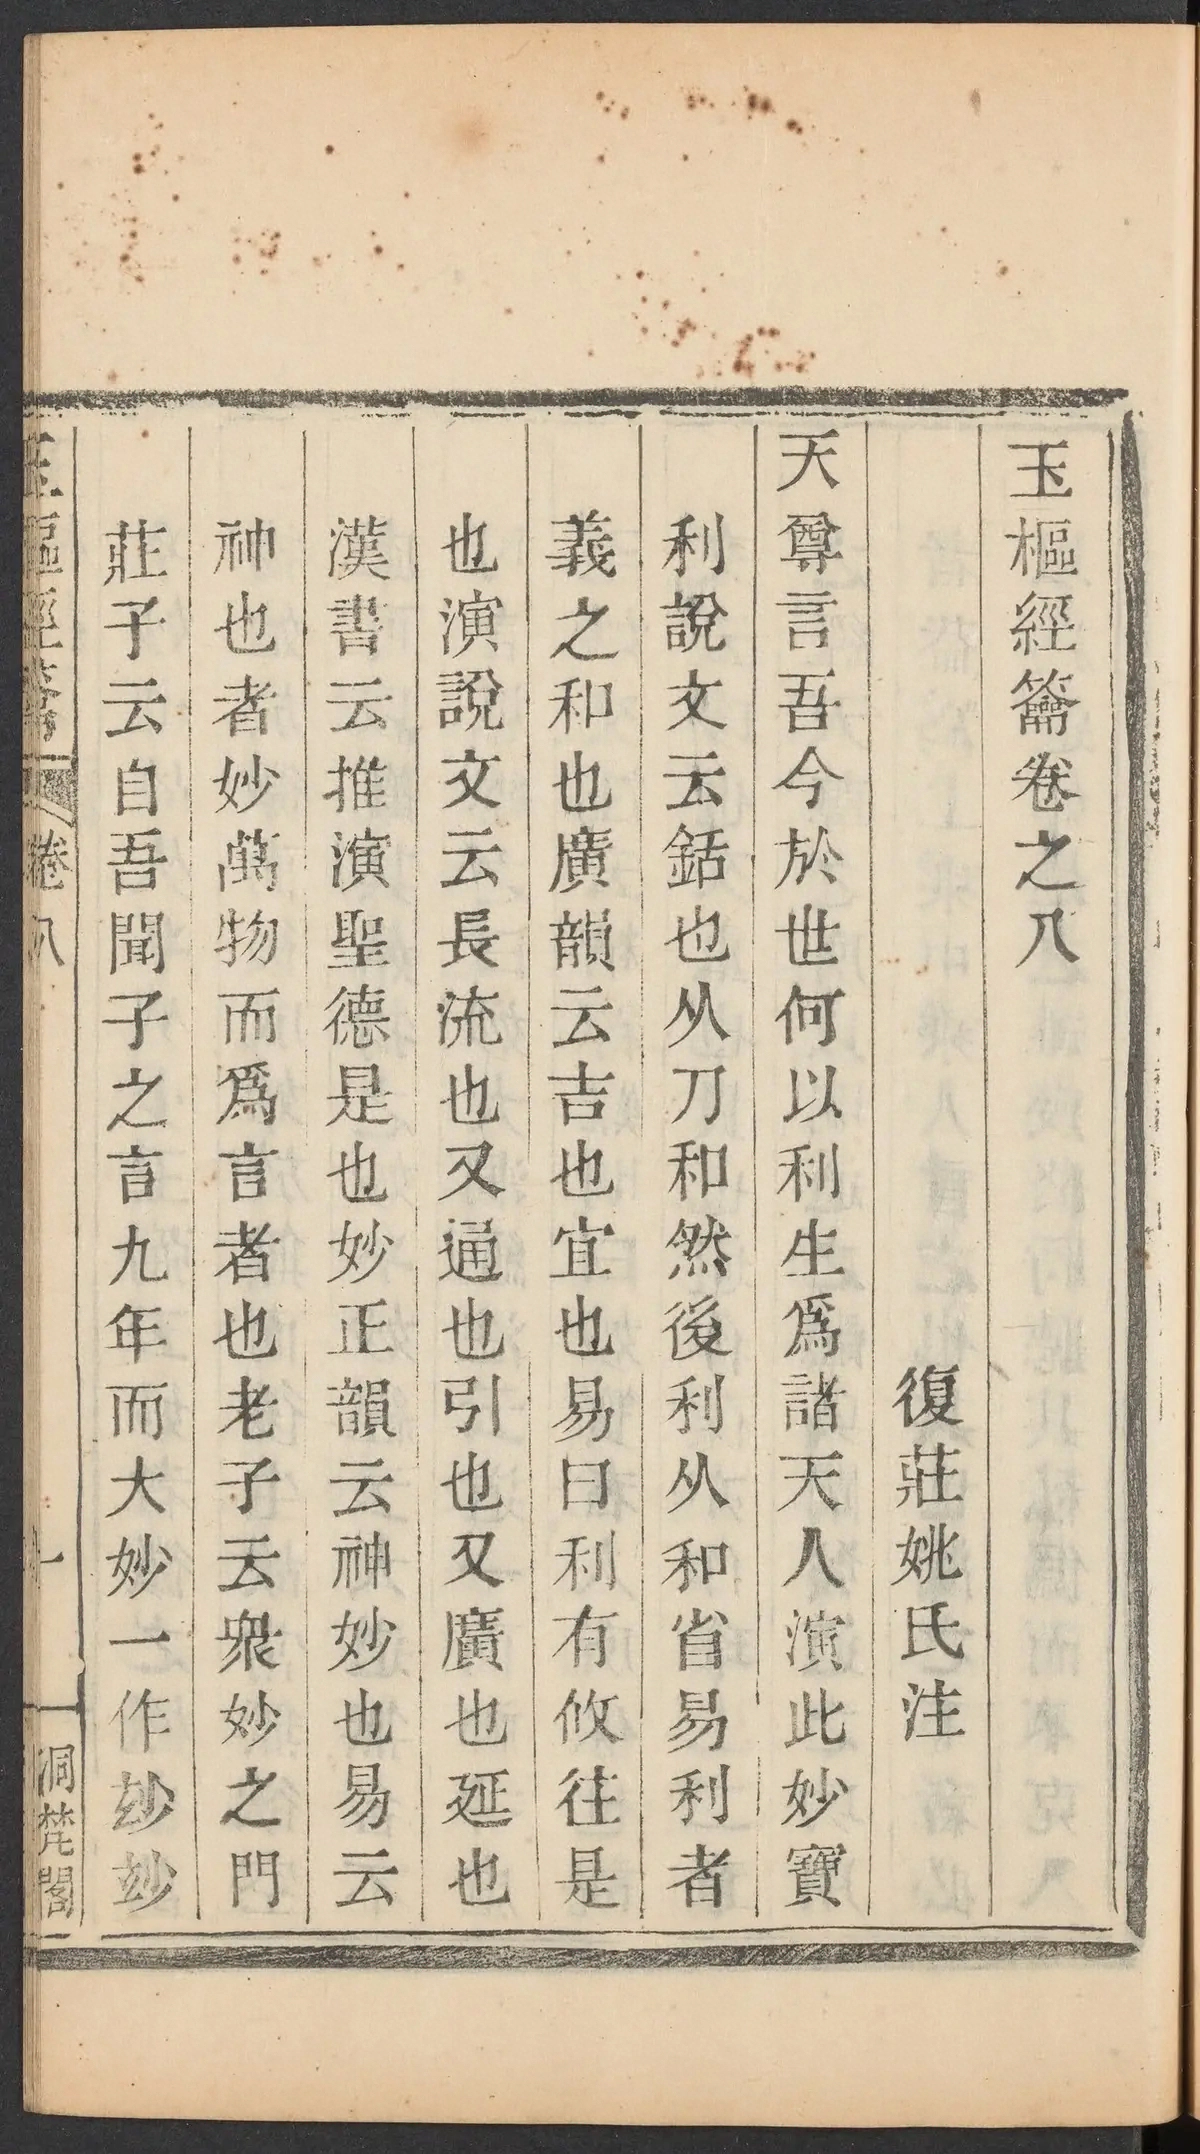 玉樞經籥卷之八
復莊姚氏注
天尊言吾今於世何以利生爲諸天人演此妙寶
利說文云銛也从刀和然後利从和省易利者
義之和也廣韻云吉也宜也易曰利有攸往是
也演說文云長流也又通也引也又廣也延也
漢書云推演聖德是也妙正韻云神妙也易云
神也者妙萬物而爲言者也老子云衆妙之門
莊子云自吾聞子之言九年而大妙一作玅玅
玉樞經籥 卷八 一 洞梵閣